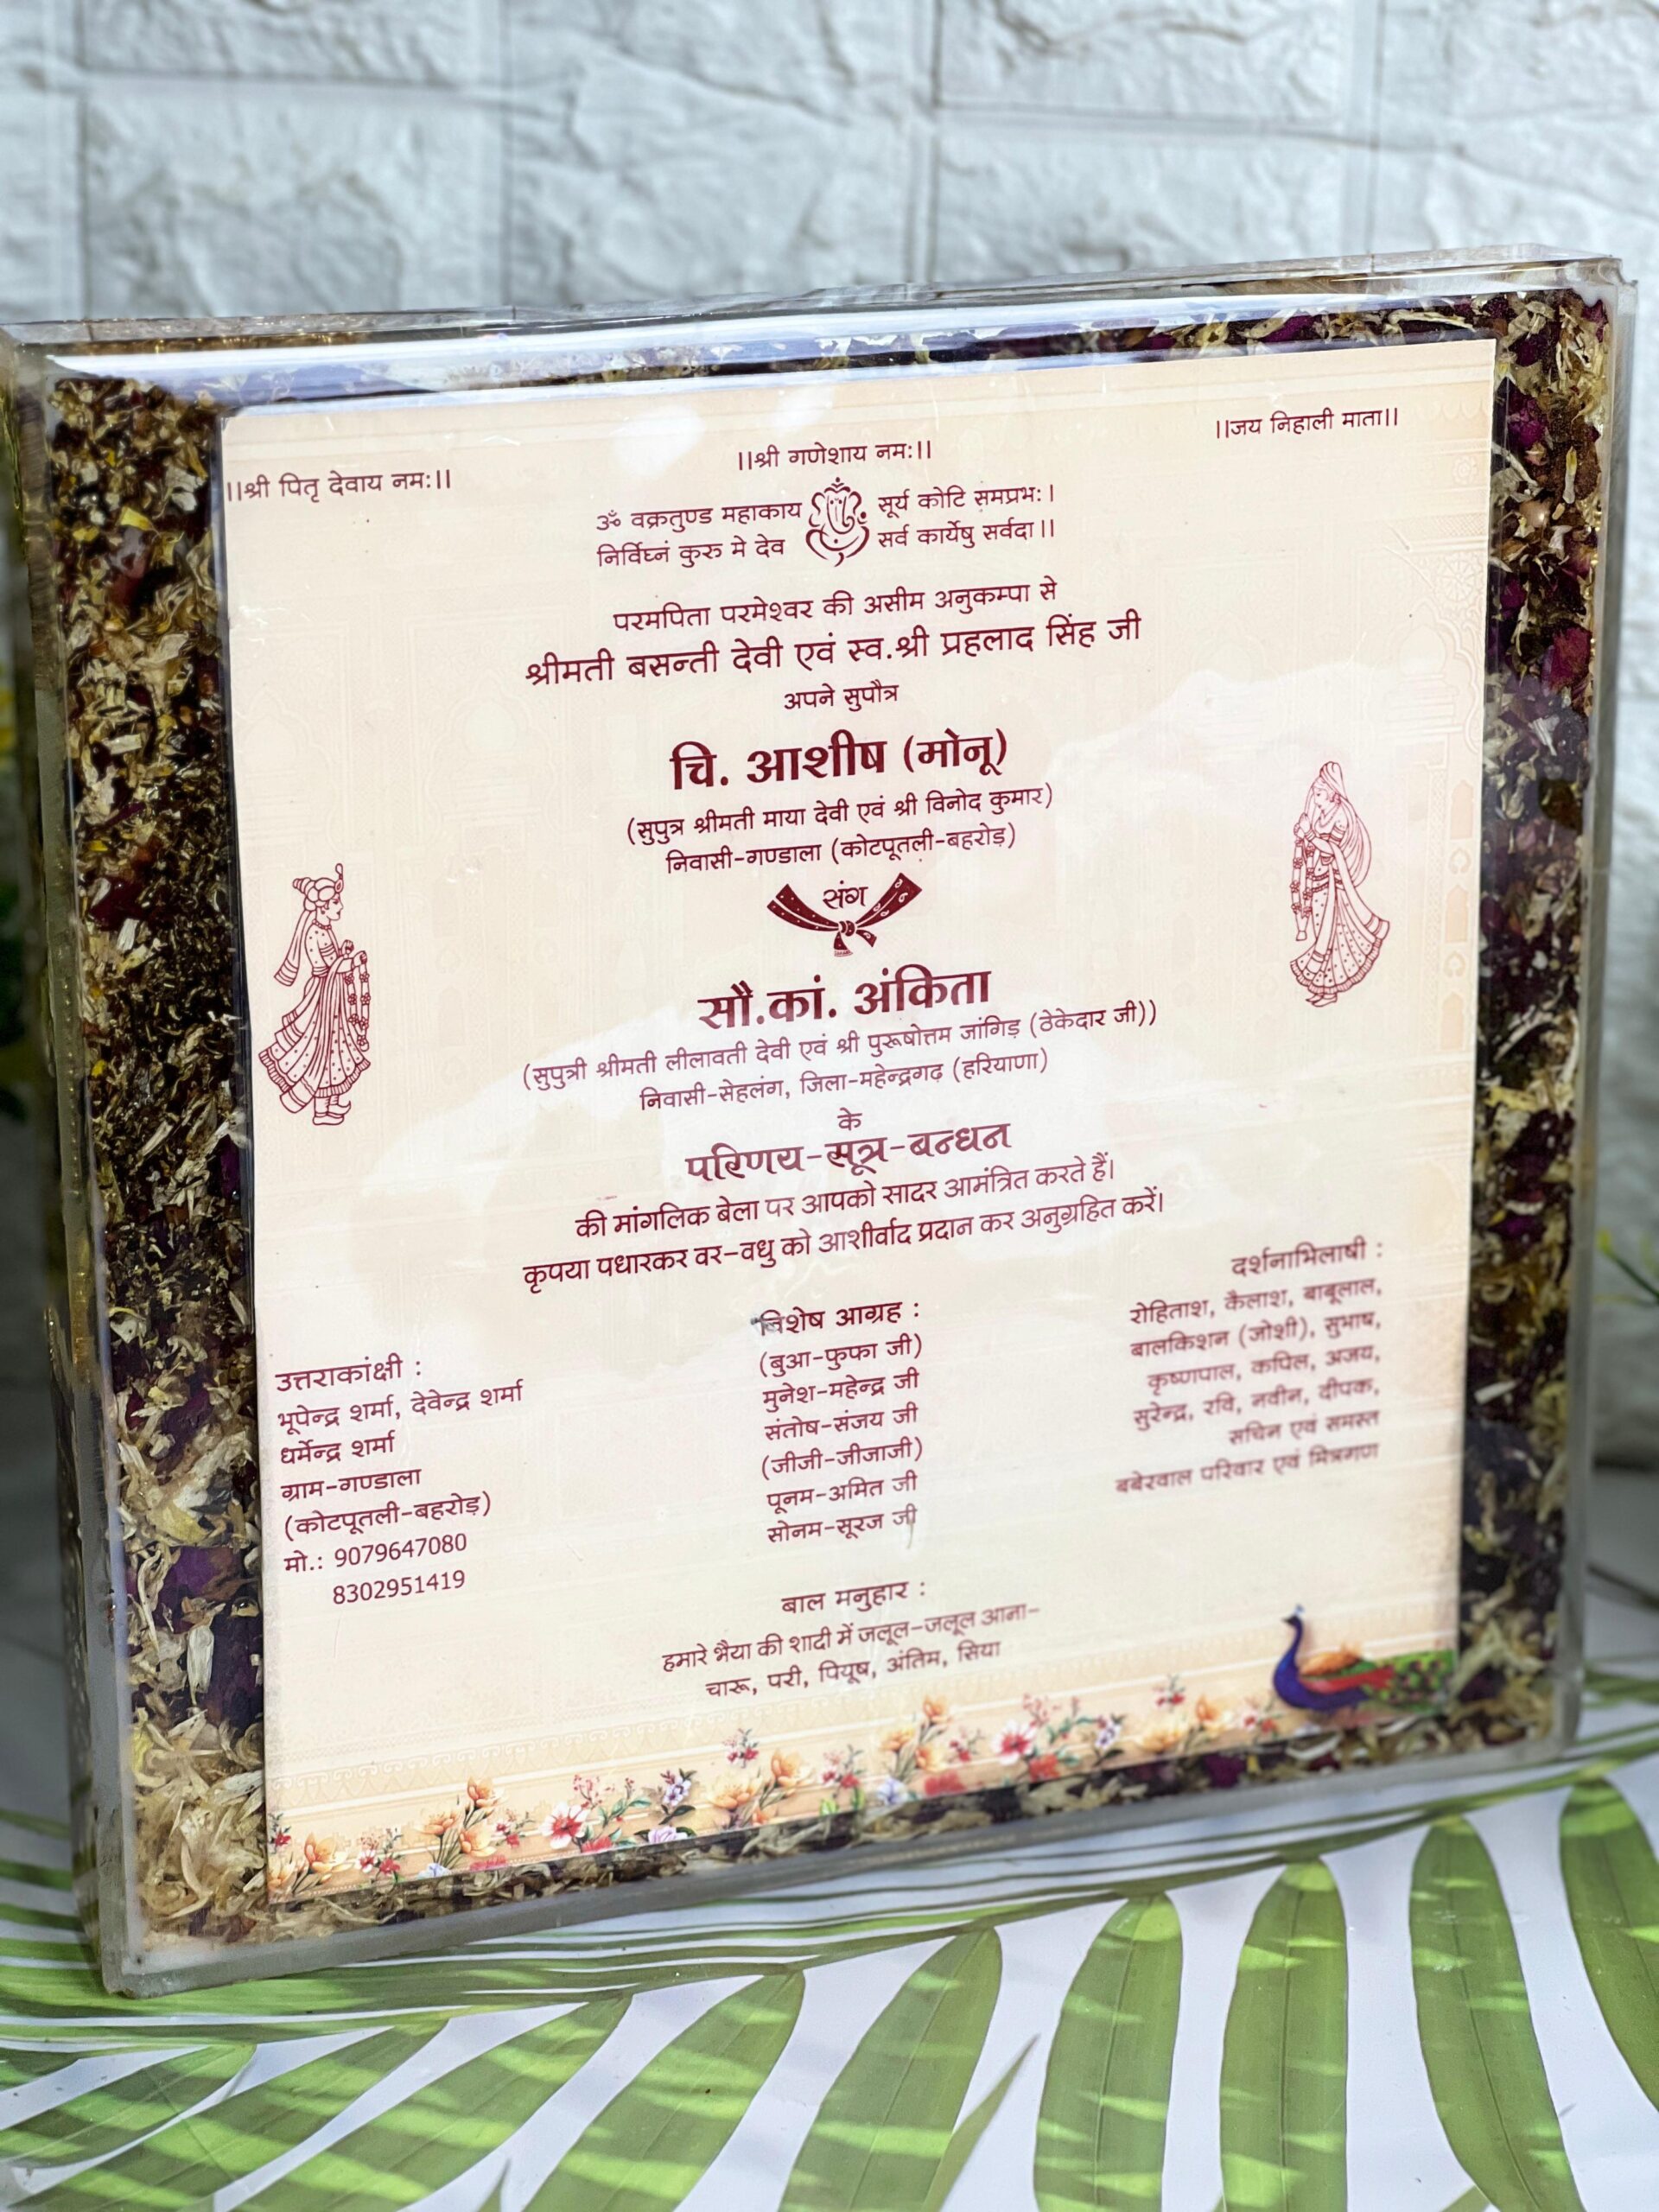 ||श्री पितृ देवाय नमः||
||श्री गणेशाय नमः||
||जय निहाली माता||
ॐ वक्रतुण्ड महाकाय सूर्य कोटि समप्रभः।
निर्विघ्नं कुरु मे देव सर्व कार्येषु सर्वदा।।
परमपिता परमेश्वर की असीम अनुकम्पा से
श्रीमती बसन्ती देवी एवं स्व.श्री प्रहलाद सिंह जी
अपने सुपौत्र
चि. आशीष (मोनू)
(सुपुत्र श्रीमती माया देवी एवं श्री विनोद कुमार)
निवासी-गण्डाला (कोटपूतली-बहरोड़)
संग
सौ.कां. अंकिता
(सुपुत्री श्रीमती लीलावती देवी एवं श्री पुरूषोत्तम जांगिड़ (ठेकेदार जी))
निवासी-सेहलंग, जिला-महेन्द्रगढ़ (हरियाणा)
के
परिणय-सूत्र-बन्धन
की मांगलिक बेला पर आपको सादर आमंत्रित करते हैं।
कृपया पधारकर वर-वधु को आशीर्वाद प्रदान कर अनुग्रहित करें।
उत्तराकांक्षी :
भूपेन्द्र शर्मा, देवेन्द्र शर्मा
धर्मेन्द्र शर्मा
ग्राम-गण्डाला
(कोटपूतली-बहरोड़)
मो.: 9079647080
8302951419
विशेष आग्रह :
(बुआ-फुफा जी)
मुनेश-महेन्द्र जी
संतोष-संजय जी
(जीजी-जीजाजी)
पूनम-अमित जी
सोनम-सूरज जी
दर्शनाभिलाषी :
रोहिताश, कैलाश, बाबूलाल,
बालकिशन (जोशी), सुभाष,
कृष्णपाल, कपिल, अजय,
सुरेन्द्र, रवि, नवीन, दीपक,
सचिन एवं समस्त
बबेरवाल परिवार एवं मित्रगण
बाल मनुहार :
हमारे भैया की शादी में जलूल-जलूल आना-
चारू, परी, पियूष, अंतिम, सिया